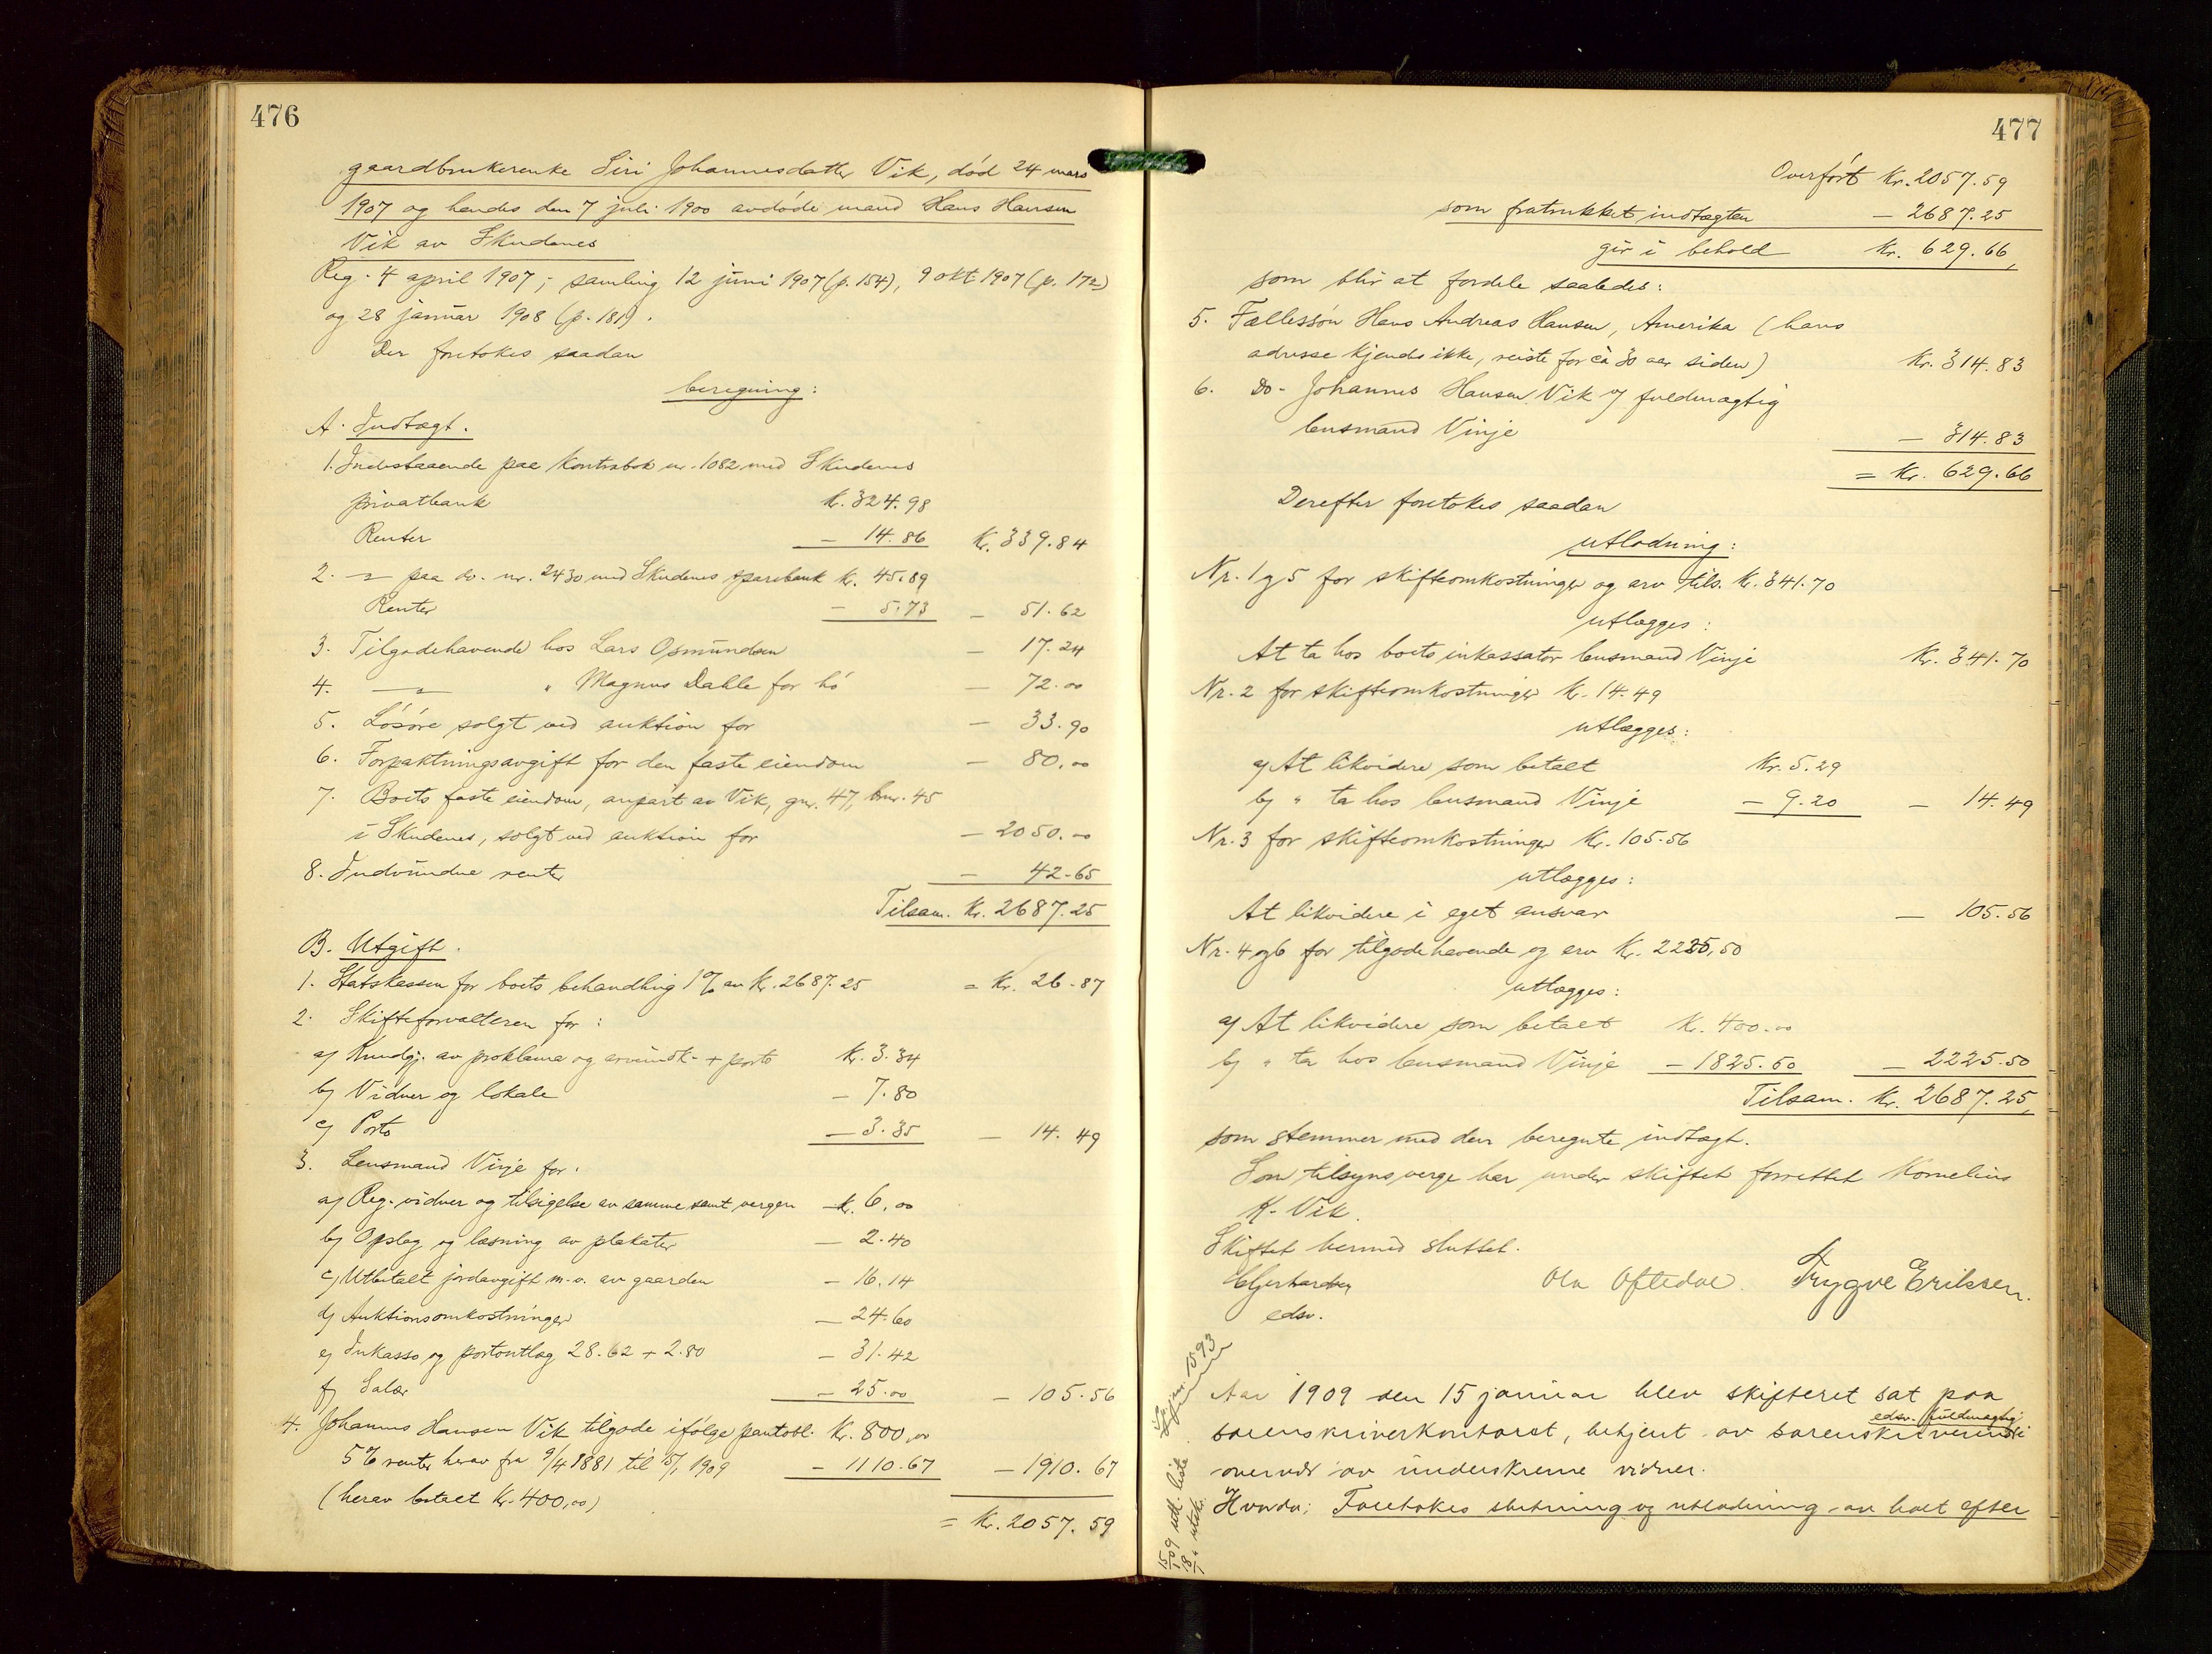 476
gaardbrukerenke Siri Johannesdatter Vik, død 24 mars
1907 og hendes den 7 juli 1900 avdøde mand Hans Hansen
Vik av Skudenes
Reg. 4 april 1907; samling 12 juni 1907 (p. 154), 9 okt. 1907 (p. 172)
og 28 januar 1908 (p. 181).
Der foretokes saadan
beregning:
A. Indtægt.
1. Indestaaende paa Kontrabok nr. 1082 med Skudenes
privatbank K. 324.98
Renter — 14.86 Kr. 339.84
2. —"— paa do. nr. 2430 med Skudenes sparebank Kr. 45.89
Renter — 5.73 — 51.62
3. Tilgodehavende hos Lars Osmundsen — 17.24
4. —"— " Magnus Dahle for hö — 72.00
5. Løsøre solgt ved auktion for — 33.90
6. Forpaktningsavgift for den faste eiendom — 80.00
7. Boets faste eiendom, anpart av Vik, gnr. 47, bnr. 45
i Skudenes, solgt ved auktion for — 2050.00
8. Indvundne renter — 42.65
Tilsam. Kr. 2687.25
B. Utgift.
1. Statskassen for boets behandling 1% av Kr. 2687.25 = Kr. 26.87
2. Skifteforvalteren for:
a) Kundgj. av proklama og arveindk. + porto Kr. 3.34
b) Vidner og lokale — 7.80
c) Porto — 3.35 — 14.49
3. Lensmand Vinje for:
a) Reg. vidner og tilsigelse av samme samt vergen K. 6.00
b) Opslag og læsning av plakater — 2.40
c) Utbetalt jordavgift m.v. av gaarden — 16.14
d) Auktionsomkostninger — 24.60
e) Inkasso og portoutlæg 28.62 + 2.80 — 31.42
f) Salær — 25.00 — 105.56
4. Johannes Hansen Vik tilgode ifølge pantobl. Kr. 800.00
5% renter herav fra 9/4 1881 til 15/1 1909 — 1110.67 — 1910.67
(herav betalt Kr. 400,00)
= Kr. 2057.59
477
Overført Kr. 2057.59
som fratrukket indtægten — 2687.25
gir i behold Kr. 629.66,
som blir at fordele saaledes:
5. Fællessøn Hans Andreas Hansen, Amerika (hans
adresse kjendes ikke, reiste for ca 30 aar siden) Kr. 314.83
6. Do- Johannes Hansen Vik v/ fuldmægtig
lensmand Vinje — 314.83
= Kr. 629.66
Derefter foretokes saadan
utlodning:
Nr. 1 og 5 for skifteomkostninger og arv tils. Kr. 341.70
utlægges:
At ta hos boets inkassator lensmand Vinje Kr. 341.70
Nr. 2 for skifteomkostninger Kr. 14.49
utlægges:
a) At likvidere som betalt Kr. 5.29
b) " ta hos lensmand Vinje — 9.20 — 14.49
Nr. 3 for skifteomkostninger Kr. 105.56
utlægges:
At likvidere i eget ansvar — 105.56
Nr. 4 og 6 for tilgodehavende og arv Kr. 2225,50
utlægges:
a) At likvidere som betalt K. 400.00
b) " ta hos lensmand Vinje — 1825.50 — 2225.50
Tilsam. Kr. 2687.25,
som stemmer med den beregnte indtægt.
Som tilsynsverge har under skiftet forrettet Kornelius
K. Vik.
Skiftet hermed sluttet.
Ola Oftedal. Trygve Eriksen.
edsv.
1593
15/1 09 utl. liste
18/1 " utskr.
Aar 1909 den 15 januar blev skifteret sat paa
sorenskriverkontoret, betjent av sorenskriverens edsv. fuldmægtig i
overvær av underskrevne vidner.
Hvorda: Foretokes slutning og utlodning av boet efter